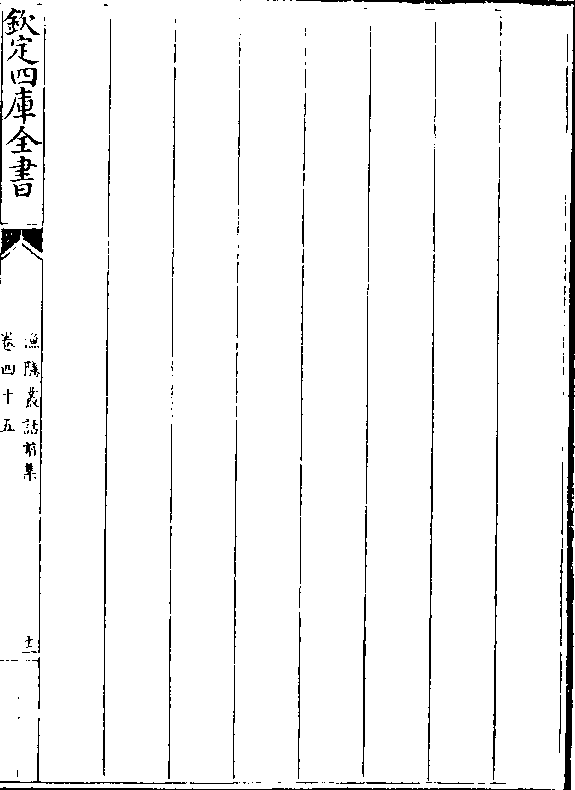 欽定四庫全書
漁隱叢話前集
卷四十五
十一